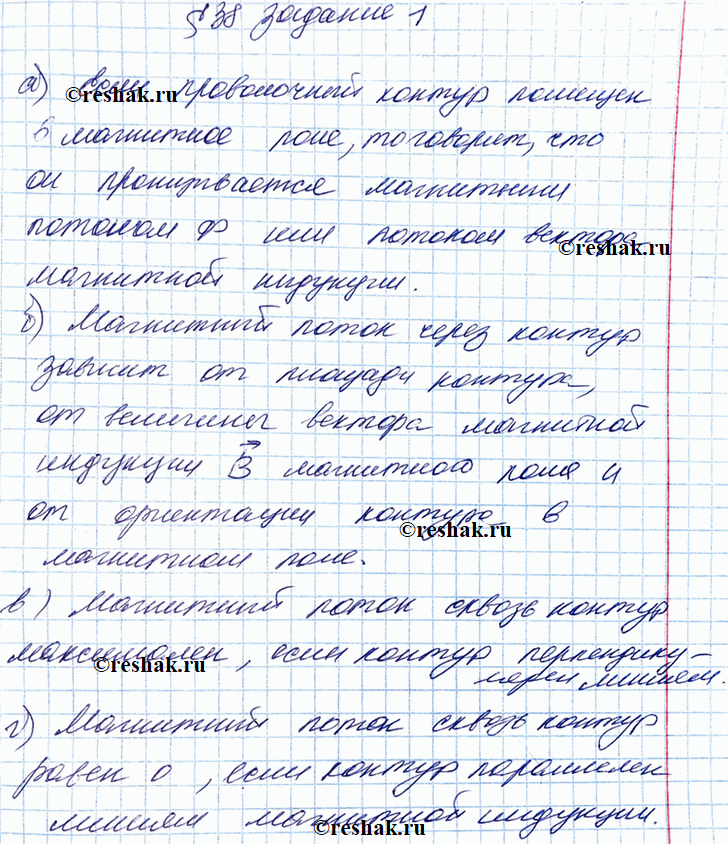 § 38 Задание 1
а) Если проволочный контур помещен
в магнитное поле, то говорят, что
он пронизывается магнитным
потоком Ф или потоком вектора
магнитной индукции.
б) Магнитный поток через контур
зависит от площади контура,
от величины вектора магнитной
индукции B магнитного поля и
от ориентации контура в
магнитном поле.
в) Магнитный поток сквозь контур
максимален, если контур перпендику-
лярен линиям.
г) Магнитный поток сквозь контур
равен 0, если контур параллелен
линиям магнитной индукции.
©reshak.ru
©reshak.ru
©reshak.ru
©reshak.ru
©reshak.ru